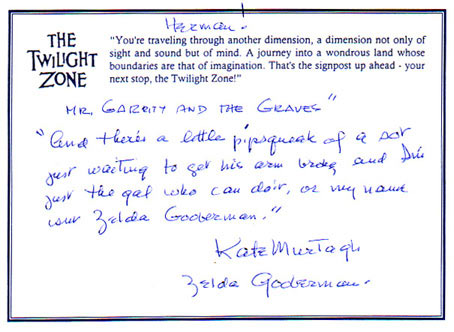 Herman.
THE
TWILIGHT
ZONE
"You're traveling through another dimension, a dimension not only of
sight and sound but of mind. A journey into a wondrous land whose
boundaries are that of imagination. That's the signpost up ahead - your
next stop, the Twilight Zone!"
MR. GARRITY AND THE GRAVES"
"And there's a little pipsqueak of a sot
just waiting to get his arm broke and I'm
just the gal who can do it, or my name
isn't Zelda Gooberman."
Kate Murtagh
Zelda Gooberman.